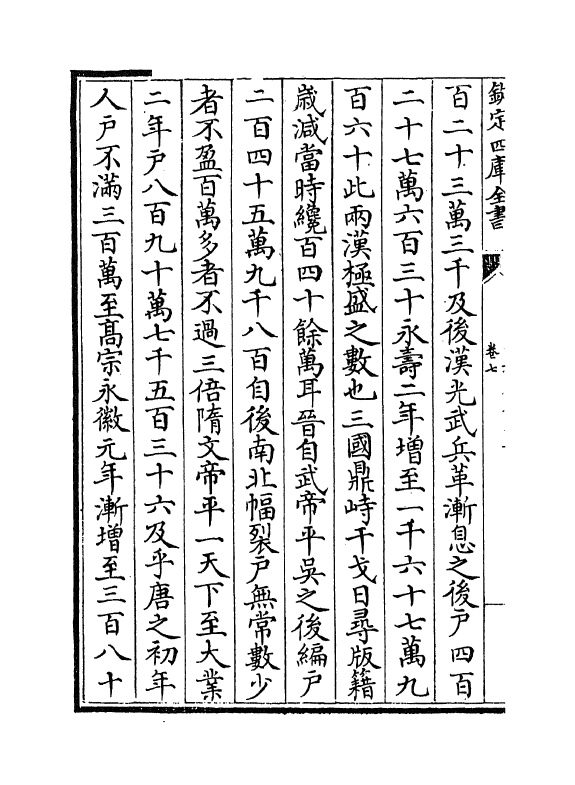 欽定四庫全書
卷七
百二十三萬三千及後漢光武兵革漸息之後戸四百
二十七萬六百三十永壽二年增至一千六十七萬九
百六十此兩漢極盛之數也三國鼎峙干戈日尋版籍
歲減當時纔百四十餘萬耳晉自武帝平吳之後編戸
二百四十五萬九千八百自後南北幅裂戸無常數少
者不盈百萬多者不過三倍隋文帝平一天下至大業
二年戸八百九十萬七千五百三十六及乎唐之初年
人戸不滿三百萬至髙宗永徽元年漸增至三百八十